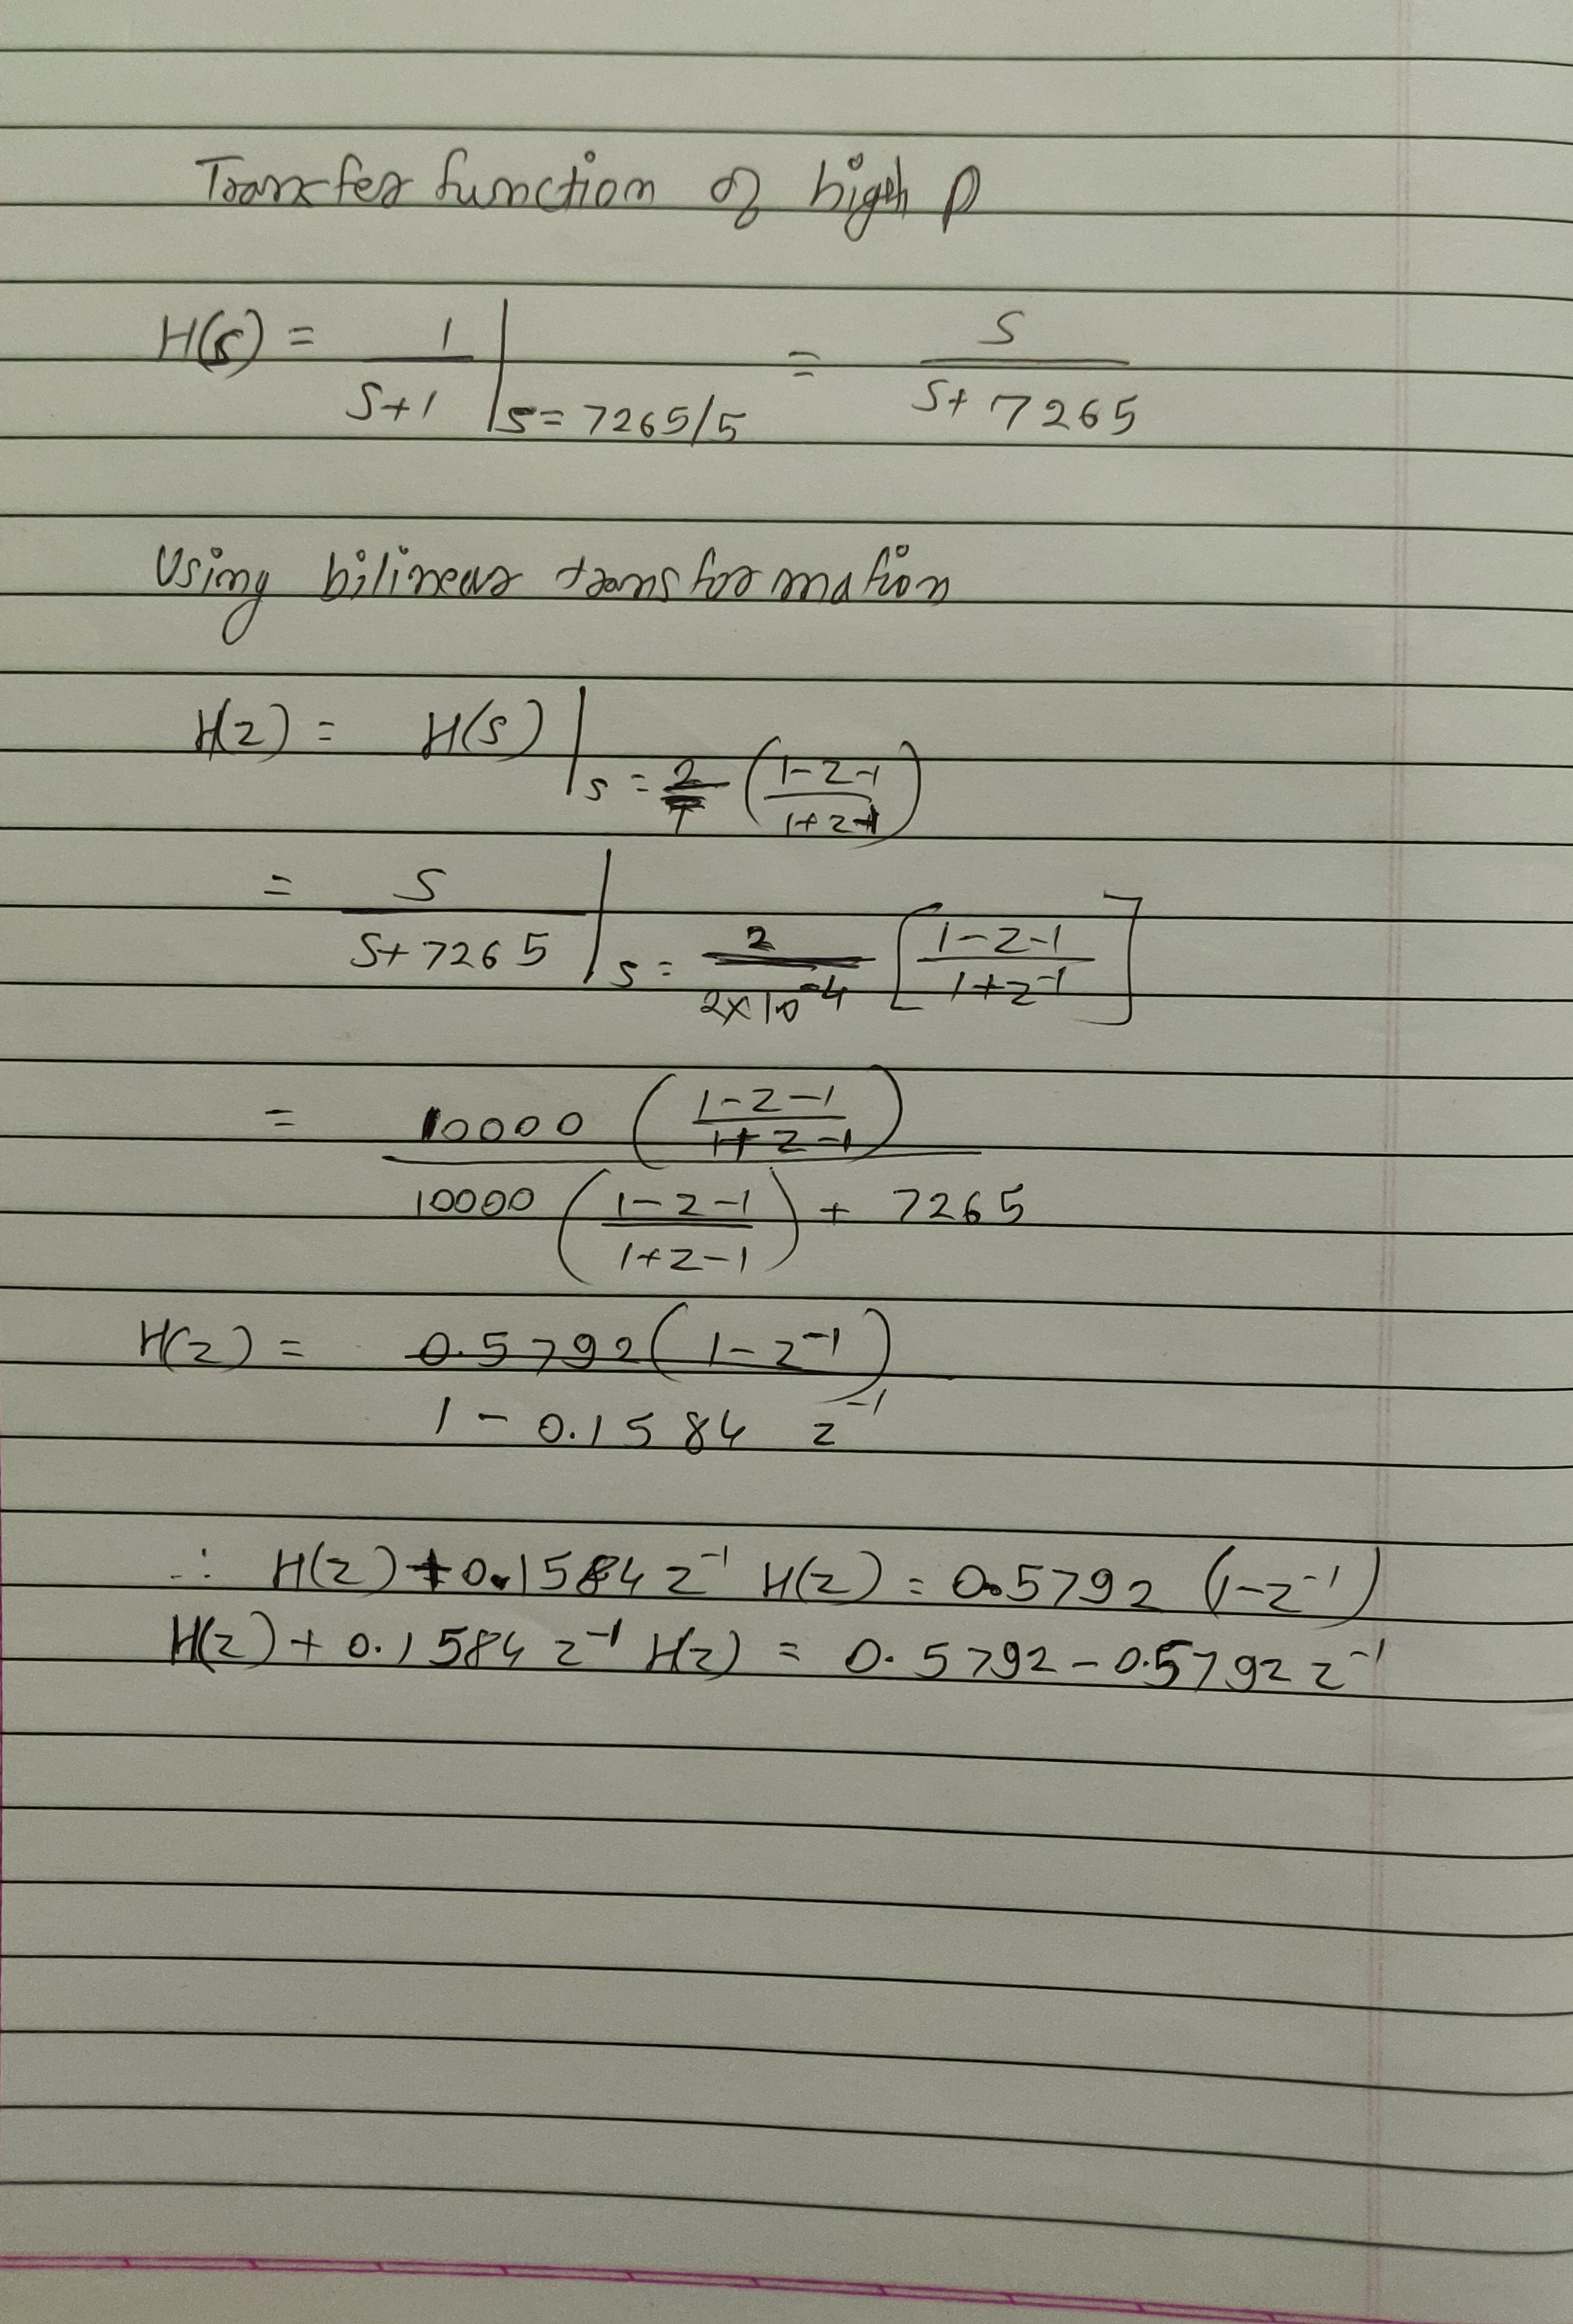 Transfer function of high p
H(s) = 1 / S+1 | s = 7265/5 = S / S+ 7265
Using bilinear transformation
H(z) = H(s) | s = 2/T (1-z-1 / 1+z-1)
= S / S+ 7265 | s = 2 / 2x10^-4 [1-z-1 / 1+z^-1]
= 10000 (1-z-1 / 1+z-1) / 10000 (1-z-1 / 1+z-1) + 7265
H(z) = 0.5792 (1-z^-1) / 1 - 0.1584 z^-1
∴ H(z) + 0.1584 z^-1 H(z) = 0.5792 (1-z^-1)
H(z) + 0.1584 z^-1 H(z) = 0.5792 - 0.5792 z^-1